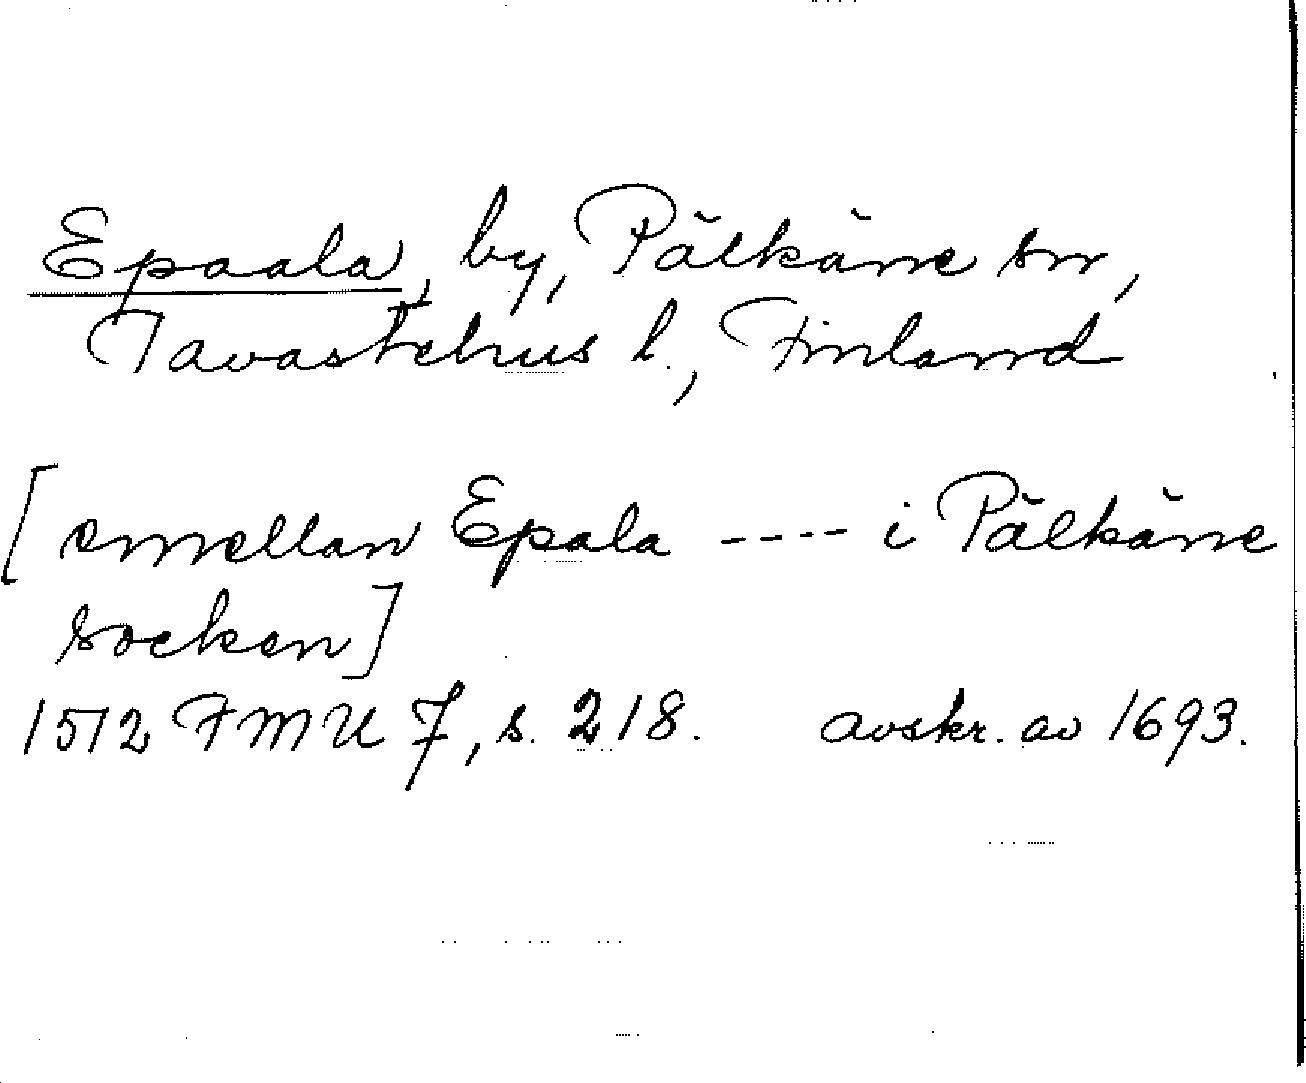 Epaala, by, Pälkäne sn,
Tavastehus l., Finland
[emellan Epala ---- i Pälkäne
socken]
1512 FMU 7, s. 218. avskr. av 1693.